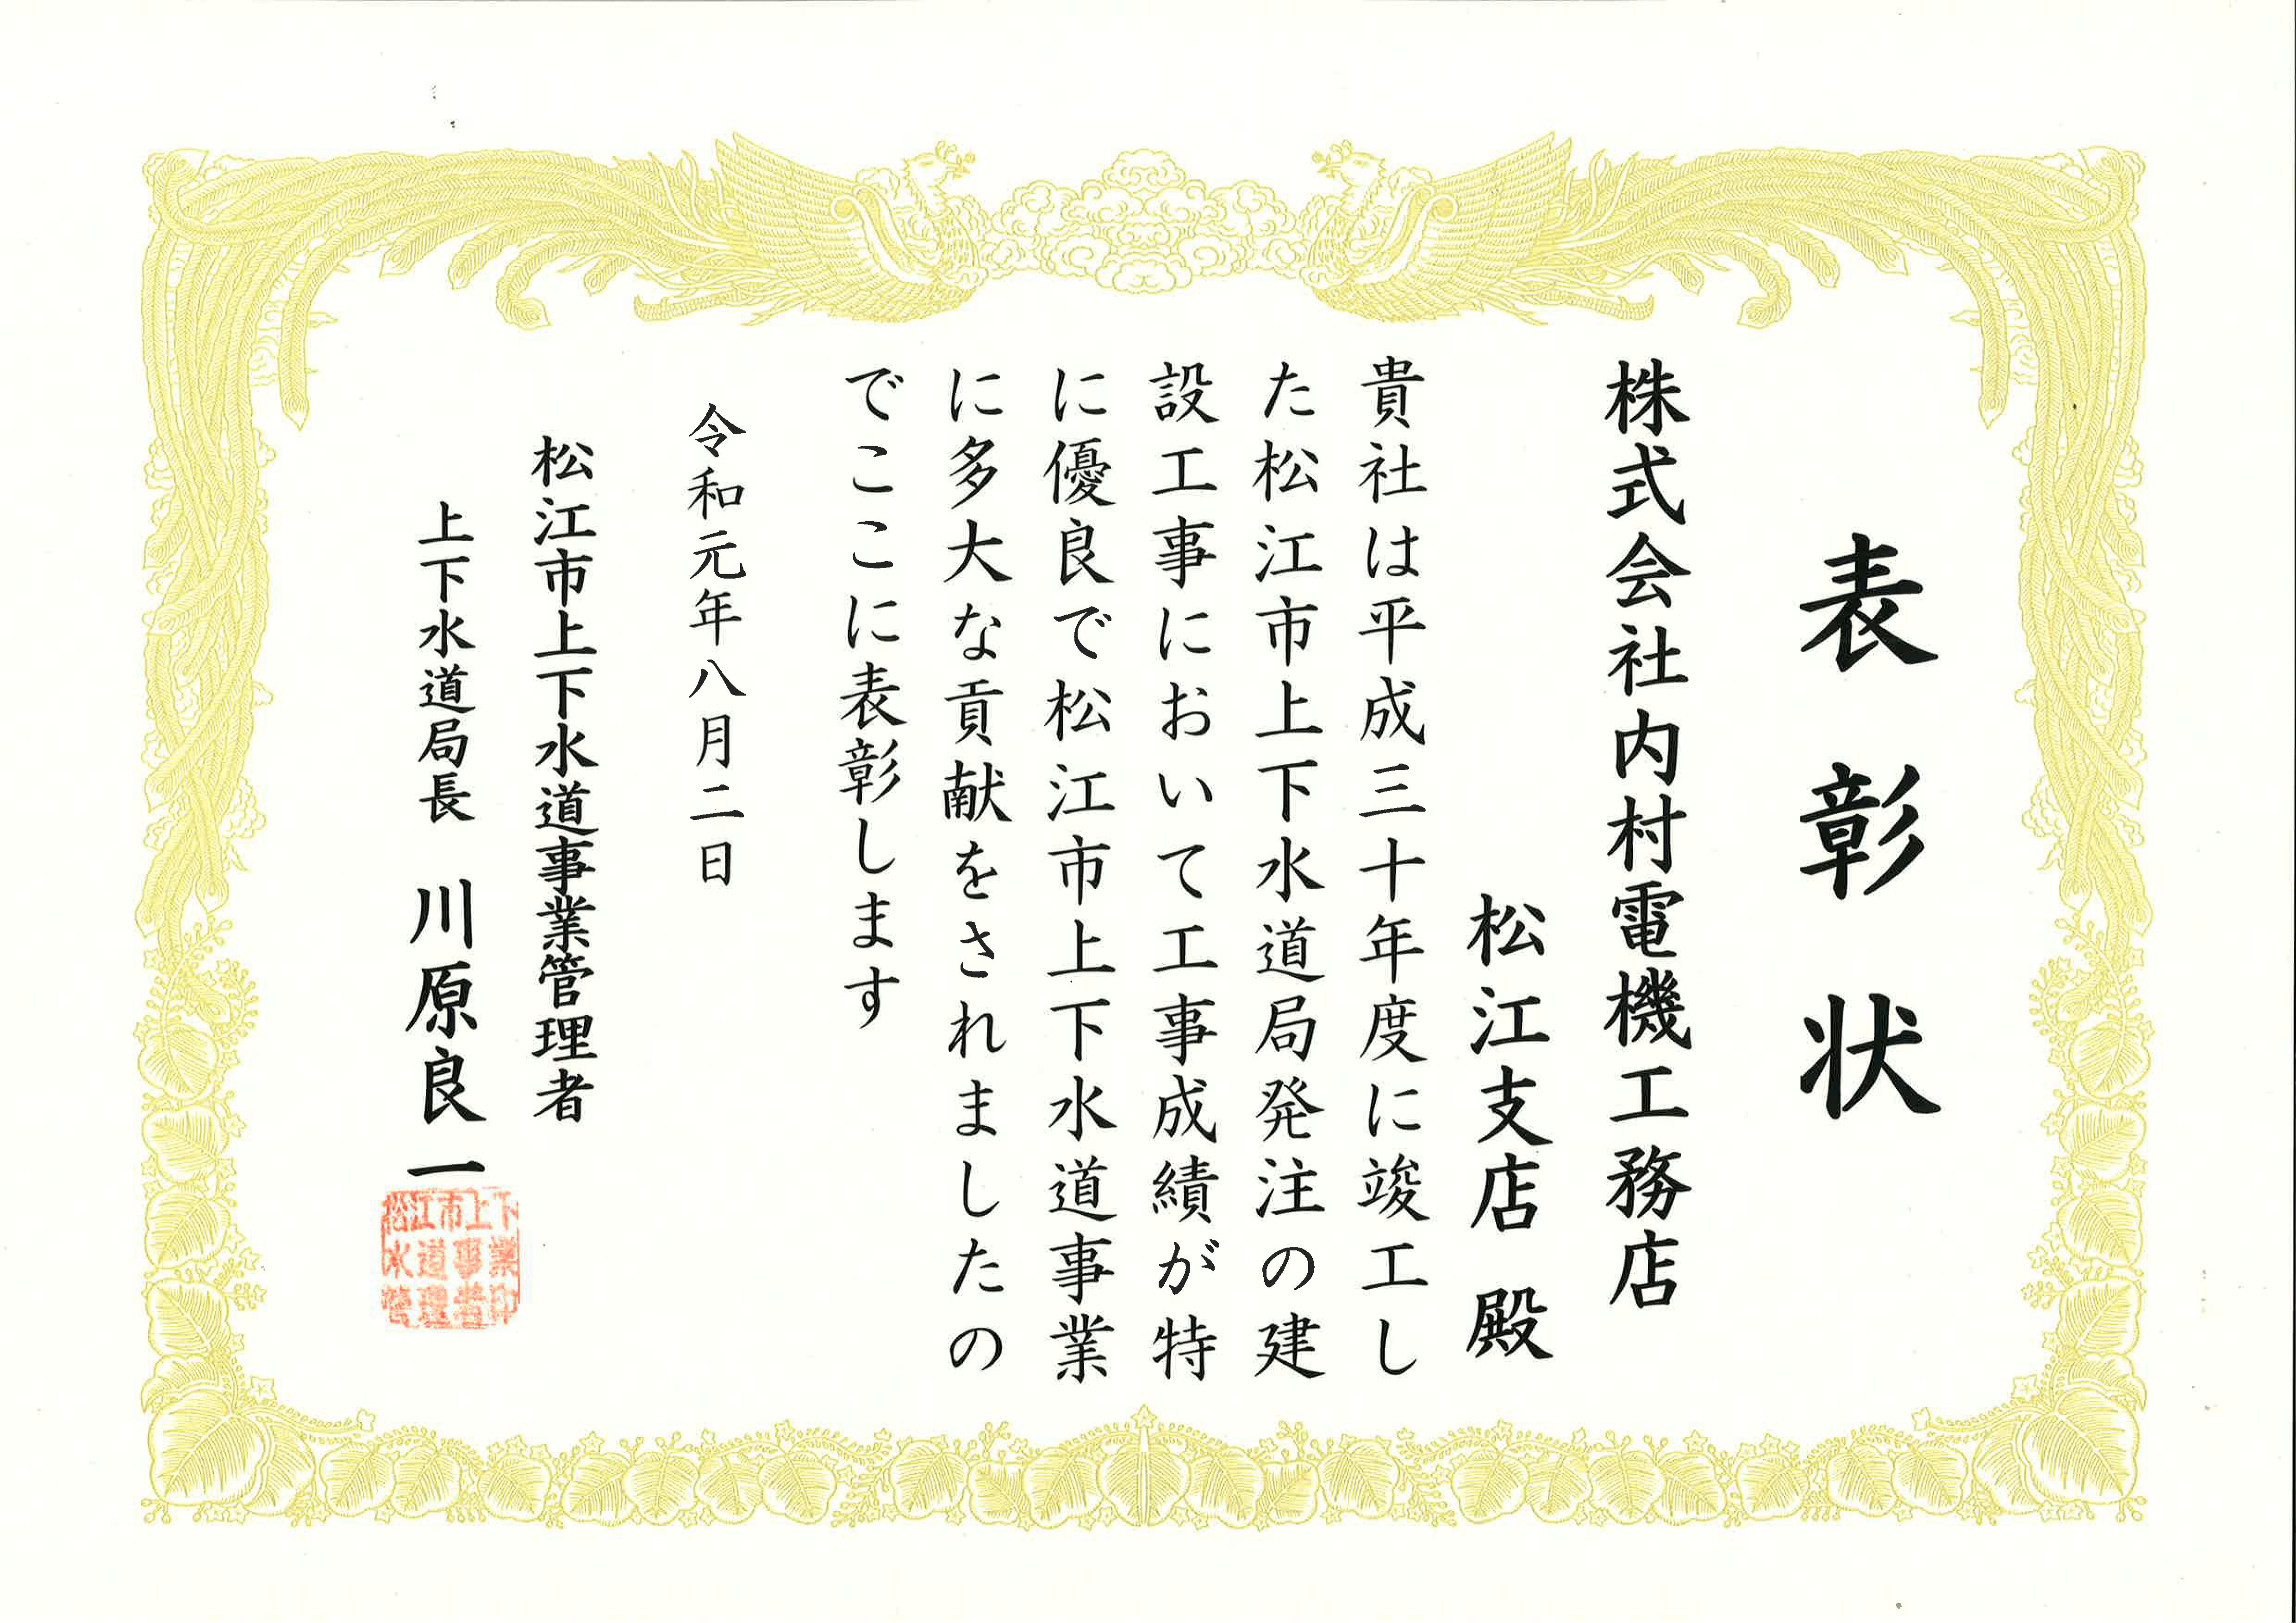 表彰状
株式会社内村電機工務店
松江支店 殿
貴社は平成三十年度に竣工し
た松江市上下水道局発注の建
設工事において工事成績が特
に優良で松江市上下水道事業
に多大な貢献をされましたの
でここに表彰します
令和元年八月二日
松江市上下水道事業管理者
上下水道局長 川原良一
松江市上下
水道事業
管理者印